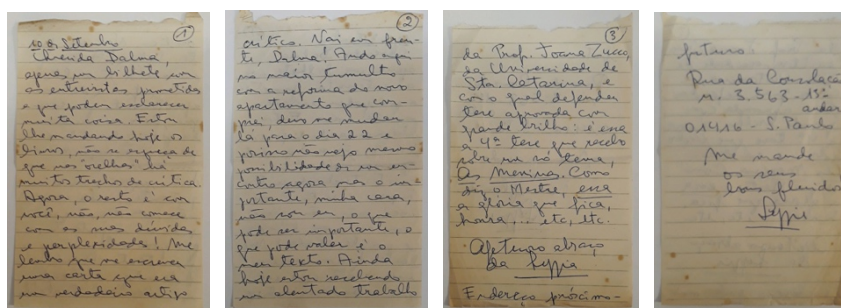 1
10 de Setembro
Querida Dalma,
apenas um bilhete com
as entrevistas prometidas
e que podem esclarecer
muita coisa. Estou
lhe mandando hoje os
livros, não se esqueça de
que nas "orelhas" há
muitos trechos de crítica.
Agora, o resto é com
você, não, não comece
com as mas dúvidas
e perplexidades! Me
lembro que me escreveu
uma carta que era
um verdadeiro artigo
2
crítico. Vai em fren-
te, Dalma! Ando aqui
no maior tumulto
com a reforma do novo
apartamento que com-
prei, devo me mudar
lá para o dia 22 e
por isso não vejo mesmo
possibilidade de um en-
contro agora mas o im-
portante, minha cara,
não sou eu, o que
pode ser importante, o
que pode valer é o
meu texto. Ainda
hoje estou recebendo
um alentado trabalho
3
da Prof. Joana Zucco,
da Universidade de
Sta. Catarina, e
com o qual defendeu
tese aprovada com
grande brilho: é essa
a 4ª tese que recebo
sobre um só tema,
As Meninas. Como
diz o Mestre, essa
a glória que fica,
honra... etc, etc.
Afetuoso abraço
da Lygia
Endereço próximo-
futuro:
Rua da Consolação
n. 3.563 - 13º
andar
01416 - S. Paulo
Me mande
os seus
bons fluidos
Lygia